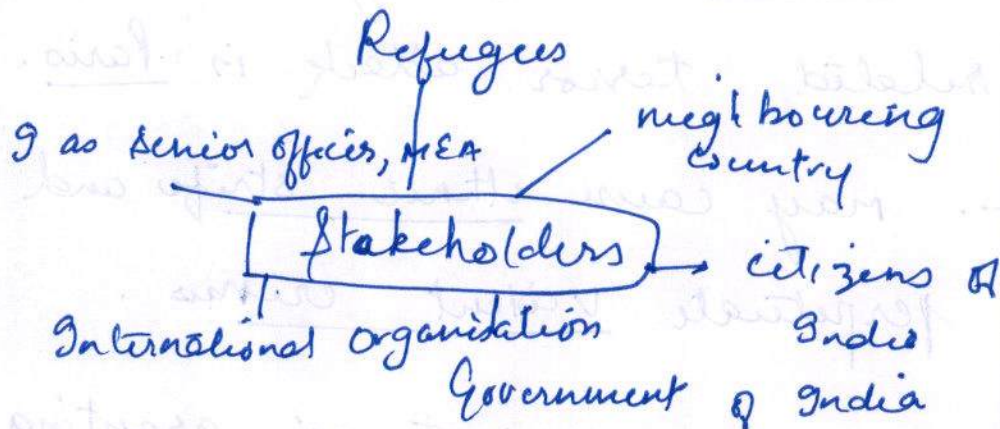 Refugees
I as senior officer, MEA
neighbouring
country
Stakeholders
citizens of
India
International Organisation
Government of India